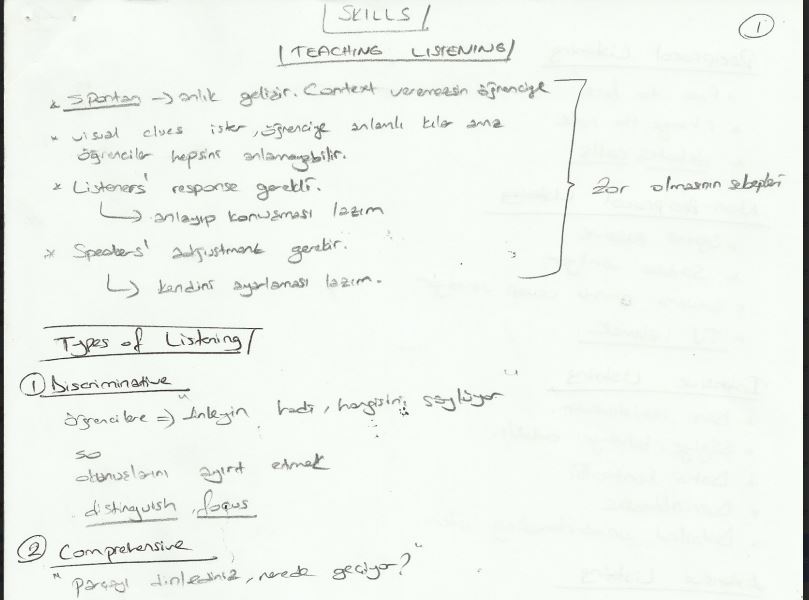 SKILLS
1
TEACHING LISTENING
* Spontan → anlık gelişir. Context veremezsin öğrenciye
* visual clues ister, öğrenciye anlamlı kılar ama
öğrenciler hepsini anlamayabilir.
* Listeners' response gerekli.
↳ anlayıp konuşması lazım
* Speakers' adjustment gerekir.
↳ kendini ayarlaması lazım.
Zor olmasının sebepleri
Types of Listening
① Discriminative
öğrencilere ⇒ "dinleyin hadi, hangisini söylüyor"
so
okunuşlarını ayırt etmek
distinguish, focus
② Comprehensive
"parçayı dinlediniz, nerede geçiyor?"